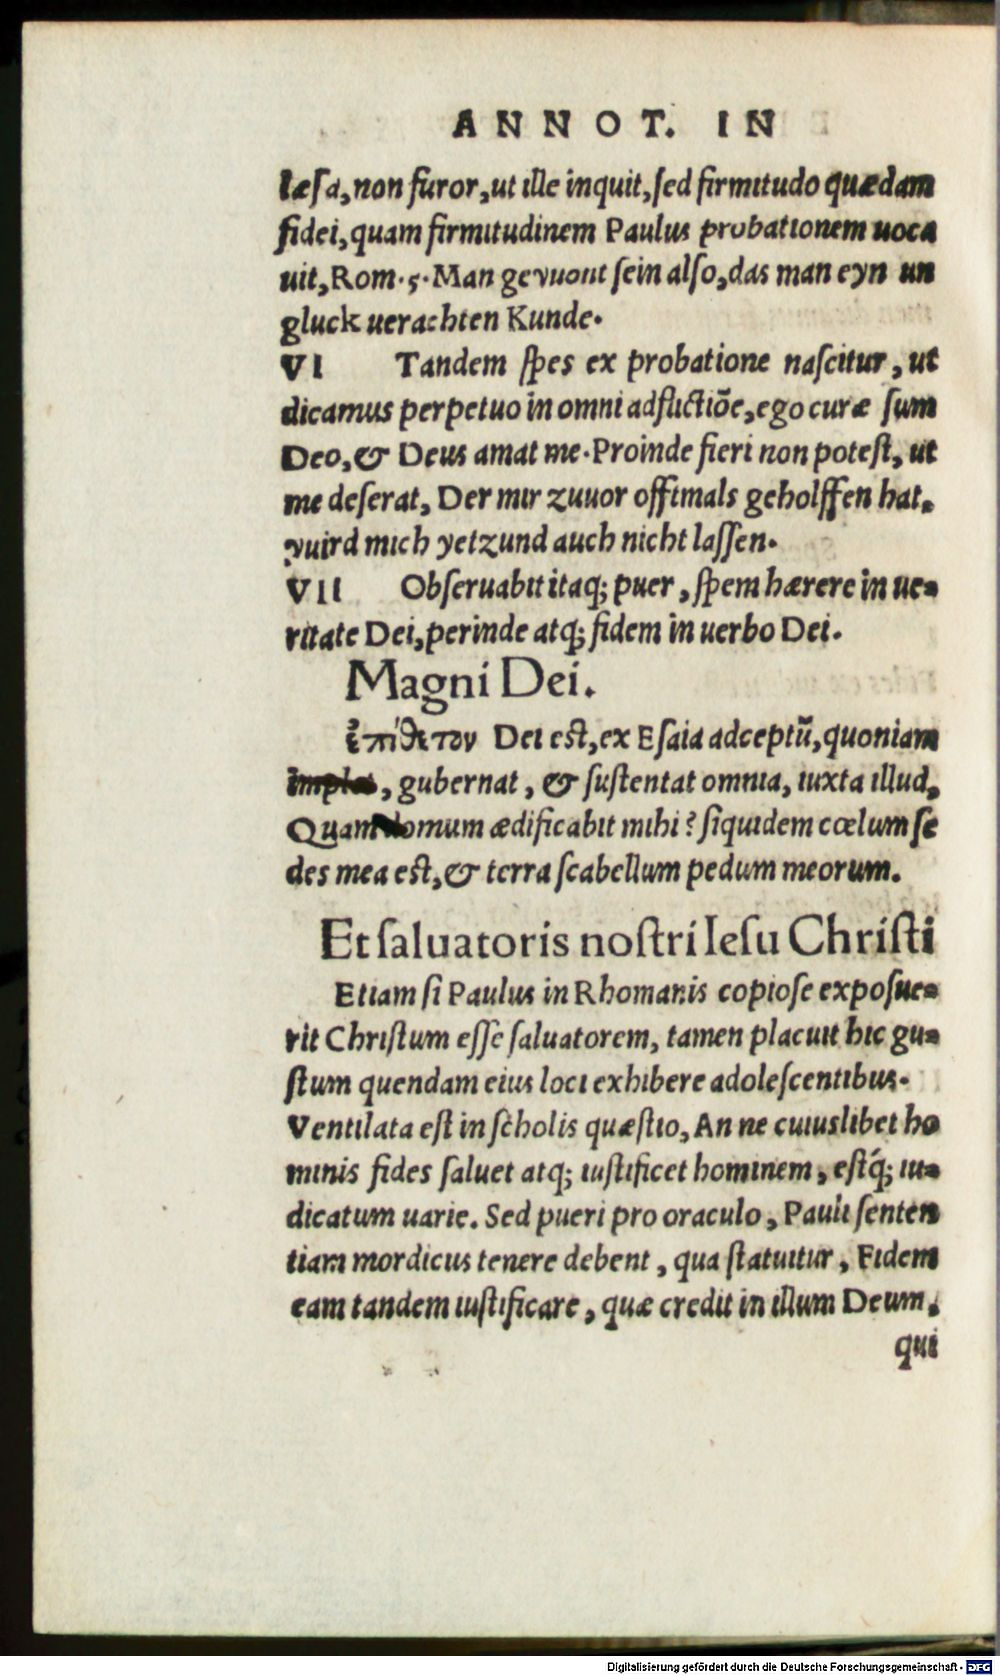 ANNOT. IN
læsa, non furor, ut ille inquit, sed firmitudo quædam
fidei, quam firmitudinem Paulus probationem uoca
uit, Rom. 5. Man gevuont sein also, das man eyn un
gluck uerachten Kunde.
VI Tandem spes ex probatione nascitur, ut
dicamus perpetuo in omni adflictiõe, ego curæ sum
Deo, & Deus amat me. Proinde fieri non potest, ut
me deserat, Der mir zuuor offtmals geholffen hat.
vuird mich yetzund auch nicht lassen.
VII Obseruabit itaq; puer, spem hærere in ue-
ritate Dei, perinde atq; fidem in uerbo Dei.
Magni Dei.
ἐπίθετον Dei est, ex Esaia adceptũ, quoniam
implet, gubernat, & sustentat omnia, iuxta illud,
Quam domum ædificabit mihi? siquidem cœlum se
des mea est, & terra scabellum pedum meorum.
Et saluatoris nostri Iesu Christi
Etiam si Paulus in Rhomanis copiose exposue-
rit Christum esse saluatorem, tamen placuit hic gu-
stum quendam eius loci exhibere adolescentibus.
Ventilata est in scholis quæstio, An ne cuiuslibet ho
minis fides saluet atq; iustificet hominem, estq́; iu-
dicatum uarie. Sed pueri pro oraculo, Pauli senten
tiam mordicus tenere debent, qua statuitur, Fidem
eam tandem iustificare, quæ credit in illum Deum,
qui
Digitalisierung gefördert durch die Deutsche Forschungsgemeinschaft - DFG